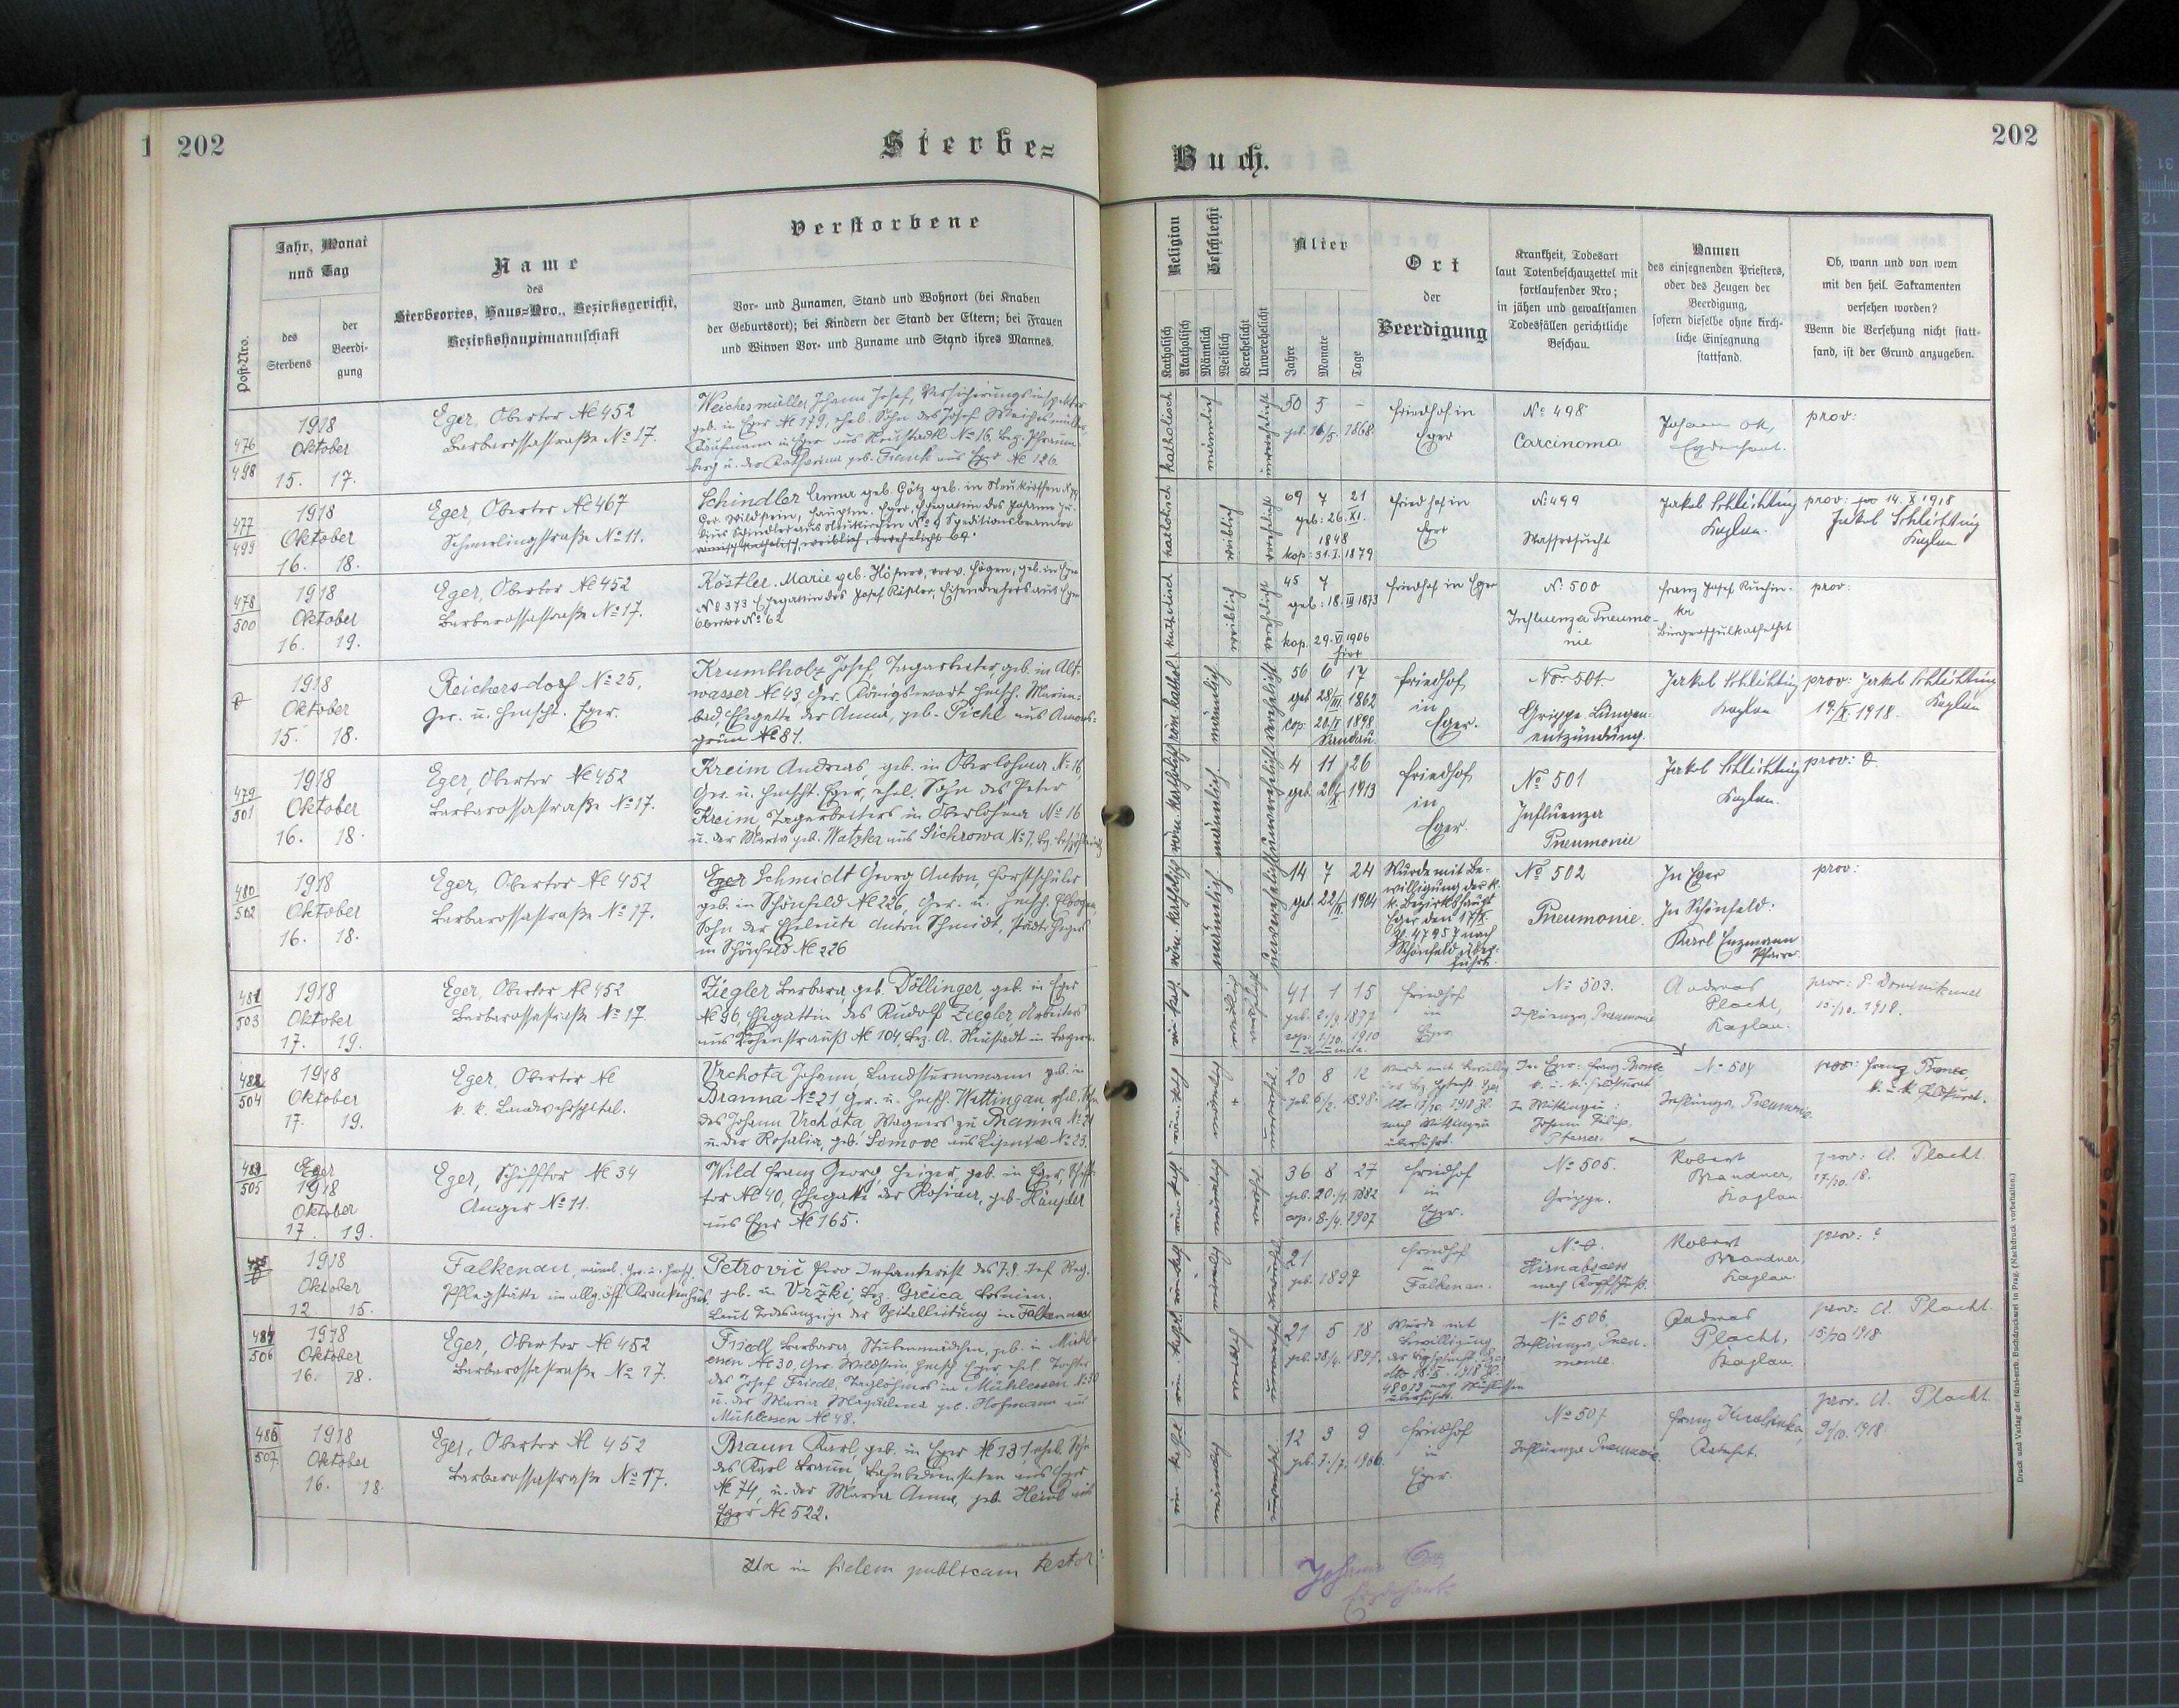 1 202
Sterbe=
Post-Nro.
Jahr, Monat
und Tag
des
Sterbens
der
Beerdi-
gung
Name
des
Sterbeortes, Haus-Nro., Bezirksgericht,
Bezirkshauptmannschaft
Verstorbene
Vor- und Zunamen, Stand und Wohnort (bei Knaben
der Geburtsort); bei Kindern der Stand der Eltern; bei Frauen
und Witwen Vor- und Zuname und Stand ihres Mannes.
476
498
1918
Oktober
15. 17.
Eger, Obertor № 452
Barbarossastraße № 17.
Weichesmüller Johann Josef, Versicherungsinspektor
geb. in Eger № 179, ehel. Sohn des Josef Weichesmüller,
Kaufmann in Eger aus Neustadtl № 16, Bez.
berg u. der Katharina geb. Frank aus Eger № 126
477
499
1918
Oktober
16. 18.
Eger, Obertor № 467
Schmerlingstraße № 11.
Schindler Anna geb. Götz geb. in Neukirchen
Ger. Wildstein, Hauptm. Eger, Ehegattin des Johann
Schindler aus Neukirchen № 9 Speditionsbeamter
römisch katholisch, weiblich, verehelicht 69.
478
500
1918
Oktober
16. 19.
Eger, Obertor № 452
Barbarossastraße № 17.
Köstler Marie geb. in Eger
№ 373 Ehegattin des Josef Köstler, Eisendrehers aus Eger
Obertor № 62
1918
Oktober
15. 18.
Reichersdorf № 25,
Ger. u. Hmscht. Eger.
Krumbholz Josef, Tagarbeiter, geb. in Alt-
wasser № 43 Ger. Königswart Hmsch. Marien-
bad, Ehegatte der Anna, geb. Pichl aus Amons-
grün № 81.
479
501
1918
Oktober
16. 18.
Eger, Obertor № 452
Barbarossastraße № 17.
Kreim Andreas, geb. in Oberlohma № 16
Ger. u. Hmscht. Eger, ehel. Sohn des Peter
Kreim, Tagarbeiters in Oberlohma № 16
u. der Maria geb. Watzka aus Sichrowa № 7,
480
502
1918
Oktober
16. 18.
Eger, Obertor № 452
Barbarossastraße № 17.
Eger Schmidt Georg Anton, Forstschüler
geb. in Schönfeld № 226, Ger. u. Hmsch. Elbogen,
Sohn der Eheleute Anton Schmidt,
in Schönfeld № 226
481
503
1918
Oktober
17. 19.
Eger, Obertor № 452
Barbarossastraße № 17.
Ziegler Barbara, geb. Döllinger, geb. in Eger
№ 96, Ehegattin des Rudolf Ziegler Arbeiters
aus Vohenstrauß № 104, Bez. A. Neustadt in Bayern.
482
504
1918
Oktober
17. 19.
Eger, Obertor №
k. k. Landwehrspital.
Vrchota Johann, Landsturmmann geb. in
Branna № 21, Ger. u. Hmsch. Wittingau, ehel. Sohn
des Johann Vrchota, Wagners zu Branna № 21
u. der Rosalia, geb. Simove № 25.
483
505
Eger
1918
Oktober
17. 19.
Eger, Schifftor № 34
Anger № 11.
Wild Franz Georg, Heizer, geb. in Eger, Schiff-
tor № 40, Ehegatte der Rosina, geb. Häupler
aus Eger № 165.
1918
Oktober
12 15.
Falkenau
Pflegstätte im allg. öff. Krankenhaus.
Petrović Pero Infanterist des 79. Inf. Reg.
geb. in Vrzki, Bez. Greica Bosnien.
Laut Todesanzeige der Spitalleitung in Falkenau
484
506
1918
Oktober
16. 18.
Eger, Obertor № 452
Barbarossastraße № 17.
Friedl Barbara, Stubenmädchen, geb. in Mühl-
essen № 30, Ger. Wildstein Hmsch. Eger ehel. Tochter
des Josef Friedl, Taglöhners in Mühlessen № 30
u. der Maria Magdalena geb. Hofmann aus
Mühlessen № 48.
485
507
1918
Oktober
16. 18
Eger, Obertor № 452
Barbarossastraße № 17.
Braun Karl, geb. in Eger № 131, ehel. Sohn
des Karl Braun, Bahnbediensteten aus Eger
№ 74, u. der Maria Anna, geb. Heinl aus
Eger № 522.
in fidem publicam testor:
Buch.
202
Religion
Katholisch
Akatholisch
Geschlecht
Männlich
Weiblich
Verehelicht
Unverehelicht
Alter
Jahre
Monate
Tage
Ort
der
Beerdigung
Krankheit, Todesart
laut Totenbeschauzettel mit
fortlaufender Nro;
in jähen und gewaltsamen
Todesfällen gerichtliche
Beschau.
Namen
des einsegnenden Priesters,
oder des Zeugen der
Beerdigung,
sofern dieselbe ohne kirch-
liche Einsegnung
stattfand.
Ob, wann und von wem
mit den heil. Sakramenten
versehen worden?
Wenn die Versehung nicht statt-
fand, ist der Grund anzugeben.
katholisch
männlich
unverehelicht
50 5 –
geb. 16/5. 1868.
Friedhof in
Eger
№ 498
Carcinoma
Johann Ott,
Erzdechant.
prov:
katholisch
weiblich
verehelicht
69 7 21
geb: 26. XI.
1848
kop: 31. I. 1879
Friedhof in
Eger
№ 499
Wassersucht
Jakob Schlichting
Kaplan.
prov: 14. X. 1918
Jakob Schlichting
Kaplan
katholisch
weiblich
verehelicht
45 7
geb: 18. III 1873
kop. 29. VI 1906
Friedhof in Eger
№ 500
Influenza Pneumo-
nie
Franz Josef
Bürgerschulkatechet
prov:
röm. kathol
männlich
verehelicht
56 6 17
geb. 28/III. 1862
cop. 1898
Sandau.
Friedhof
in
Eger.
No 501
Grippe Lungen-
entzündung.
Jakob Schlichting
Kaplan
prov: Jakob Schlichting
19./X. 1918. Kaplan
röm. katholisch
männlich
unverehelicht
4 11 26
geb. 1913
Friedhof
in
Eger.
№ 501
Influenza
Pneumonie
Jakob Schlichting
Kaplan.
prov:
röm. katholisch
männlich
unverehelicht
14 7 24
geb. 1904
Wurde mit Be-
willigung der k.
k. Bezirkshaupt
Eger den 17/X.
Z. 47957 nach
Schönfeld über-
führt.
№ 502
Pneumonie.
In Eger
In Schönfeld:
Karl Enzmann
Pfarrer
prov:
41 1 15
1910
Friedhof
in
Eger
№ 503.
Influenza, Pneumonie
Andreas
Placht,
Kaplan.
prov: P. Dominikaner
15./10. 1918.
20 8 12
geb. 6/2. 1898.
nach Wittingau
überführt.
In Eger: Franz
k. u. k. Feldkurat.
In Wittingau:
Johann
Pfarrer.
№ 504
Influenza, Pneumonie
prov: Franz
k. u. k. Feldkurat.
36 8 27
geb. 20./1. 1882
cop. 8./4. 1907
Friedhof
in
Eger.
№ 505.
Grippe.
Robert
Brandner,
Kaplan
prov: A. Placht.
17/10. 18.
21
geb. 1897
Friedhof
in
Falkenau.
Hirnabscess
nach Kopfschuß.
Robert
Brandner,
Kaplan
prov: ?
21 5 18
geb. 28/4. 1897.
Wurde mit
Bewilligung
überführt.
№ 506.
Influenza, Pneu-
monie.
Andreas
Placht,
Kaplan.
prov: A. Placht.
15/10 1918
12 3 9
geb. 7./7. 1906.
Friedhof
in
Eger.
№ 507
Influenza Pneumonie.
Franz
Katechet.
prov. A. Placht
9/10. 1918
Johann Ott,
Erzdechant
Druck und Verlag der fürst-erzb. Buchdruckerei in Prag. (Nachdruck vorbehalten.)